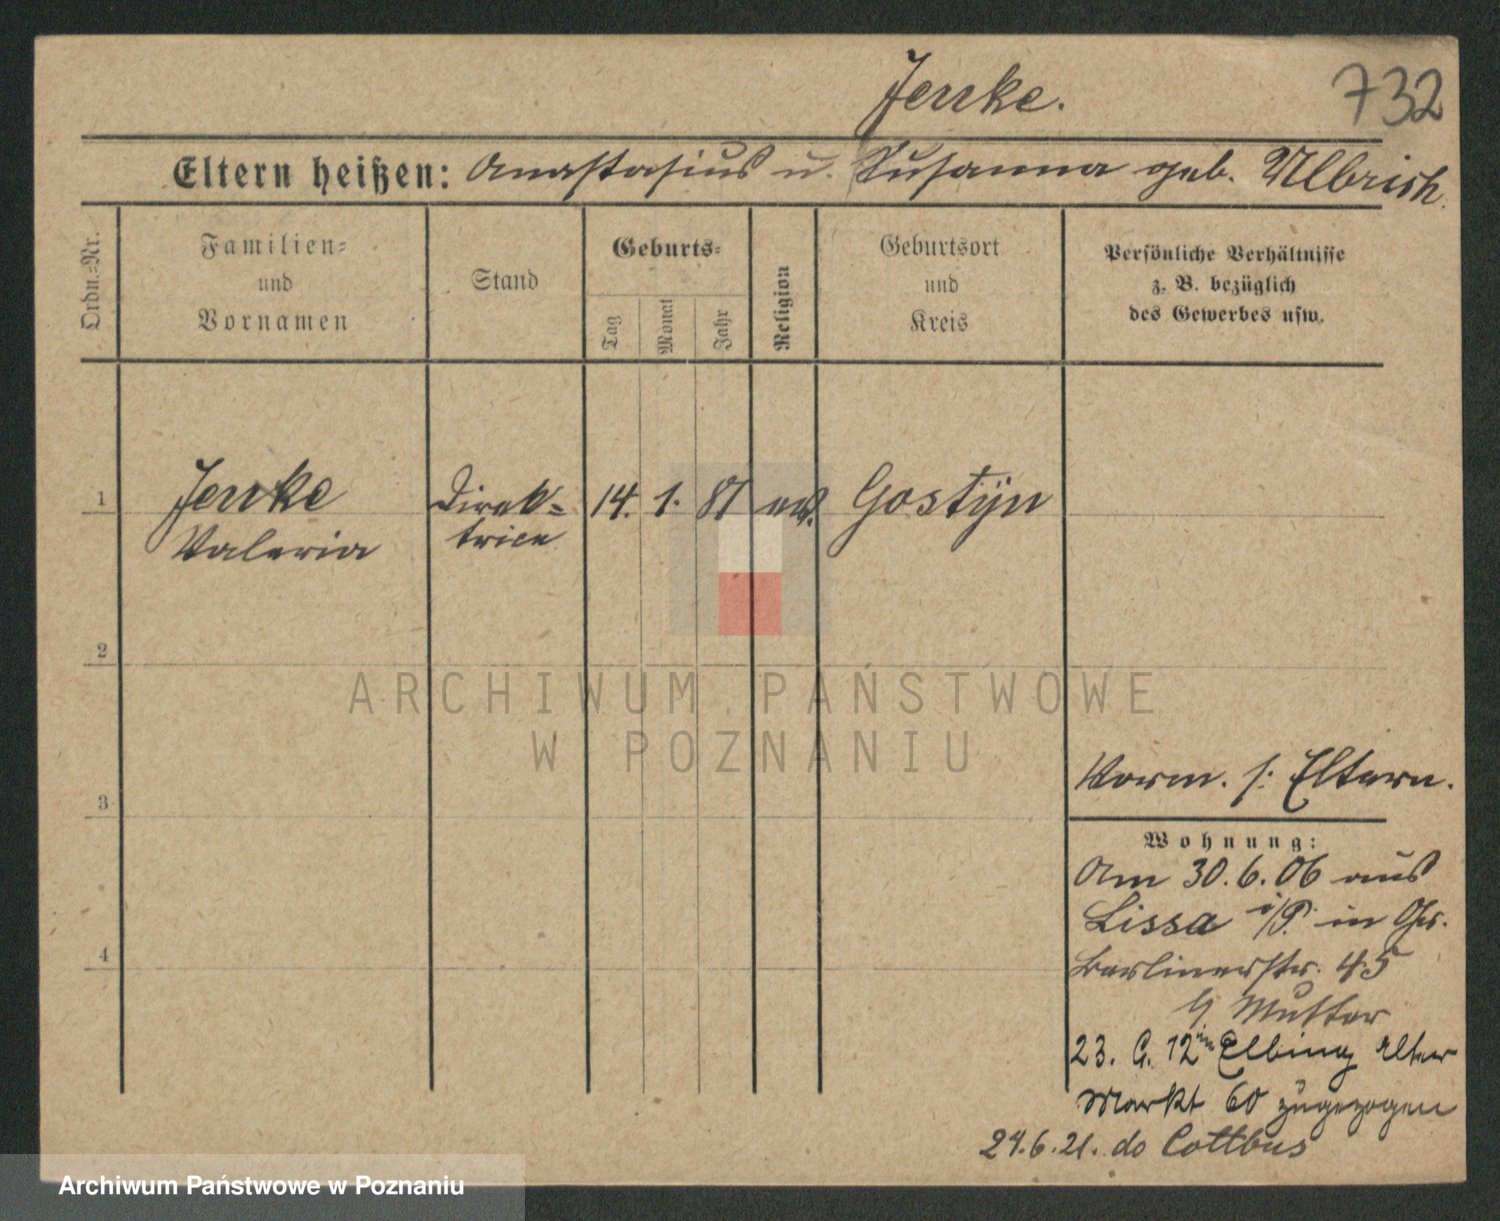 Jenke.
732
Eltern heißen: Anastasius u. Susanna geb. Ulbrich.
Ordn.=Nr.
Familien=
und
Vornamen
Stand
Geburts=
Tag
Monat
Jahr
Religion
Geburtsort
und
Kreis
Persönliche Verhältnisse
z. B. bezüglich
des Gewerbes usw.
1
Jenke
Valeria
Direk=
trice
14. 1. 87
Gostÿn
2
ARCHIWUM PAŃSTWOWE
W POZNANIU
3
Vorm. s: Eltern.
Wohnung:
Am 30.6.06 aus
Lissa i/P. in
Berlinerstr. 45
Mutter
4
23. 12 Elbing Alter
Markt 60 zugezogen
24.6.21. do Cottbus
Archiwum Państwowe w Poznaniu